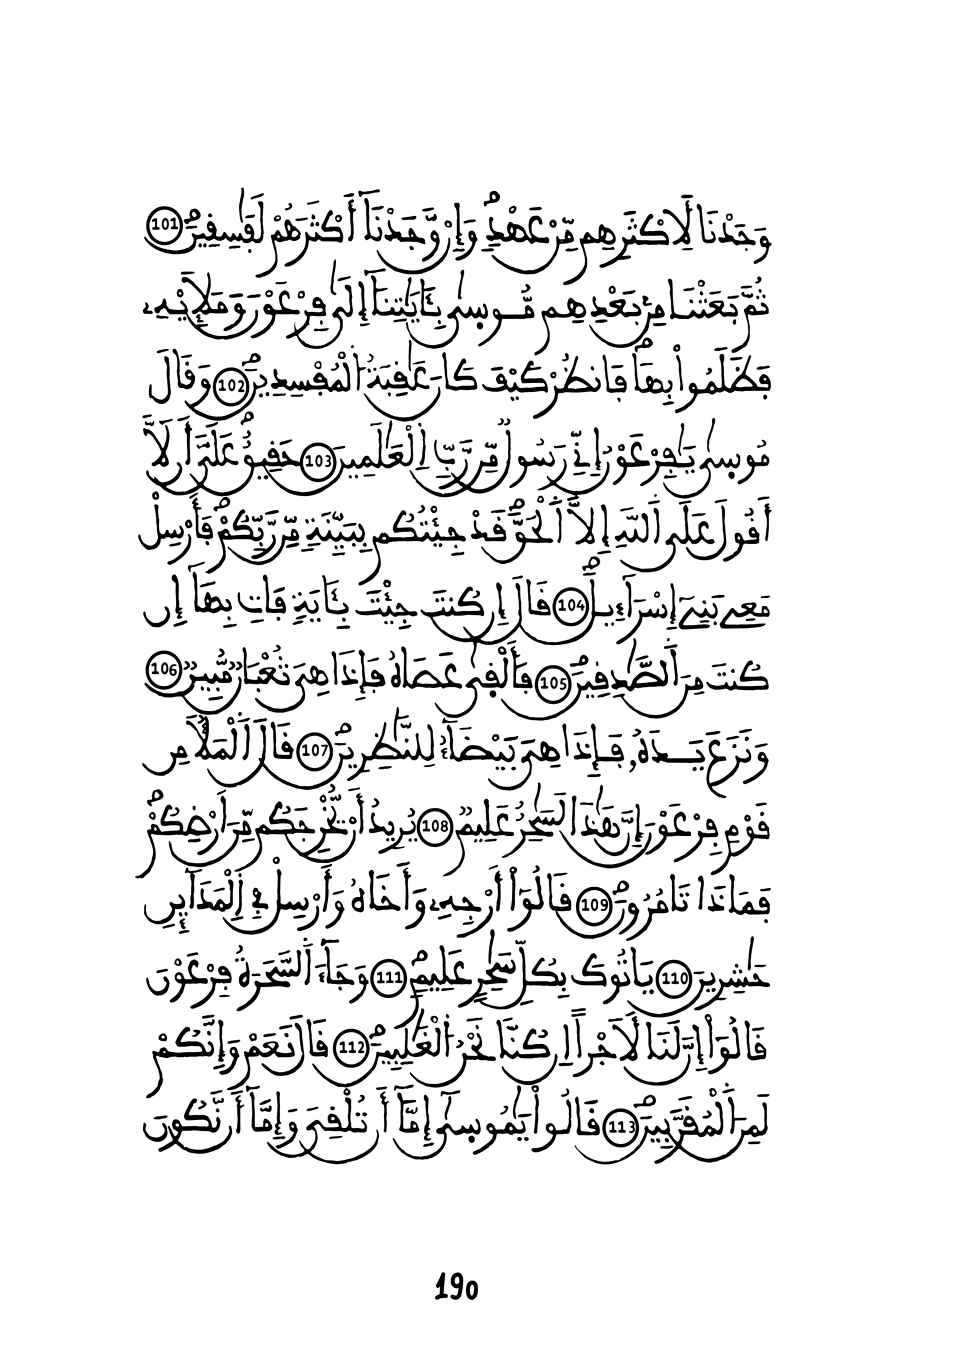 وَجَدْنَا لِأَكْثَرِهِم مِّنْ عَهْدٍ وَإِنْ وَّجَدْنَآ أَكْثَرَهُمْ لَفَٰسِقِينَ 101
ثُمَّ بَعَثْنَا مِنۢ بَعْدِهِم مُّوسِىٰ بِـَٔايَٰتِنَآ إِلَىٰ فِرْعَوْنَ وَمَلَإِيْهِۦ
فَظَلَمُواْ بِهَا فَانظُرْ كَيْفَ كَانَ عَٰقِبَةُ اُ۬لْمُفْسِدِينَ 102 وَقَالَ
مُوسِىٰ يَٰفِرْعَوْنُ إِنِّے رَسُولٌ مِّن رَّبِّ اِ۬لْعَٰلَمِينَ 103 حَقِيقٌ عَلَىَّ أَن لَّآ
أَقُولَ عَلَى اَ۬للَّهِ إِلَّا اَ۬لْحَقَّ قَدْ جِئْتُكُم بِبَيِّنَةٍ مِّن رَّبِّكُمْ فَأَرْسِلْ
مَعِے بَنِےٓ إِسْرَآءِيلَ 104 قَالَ إِن كُنتَ جِئْتَ بِـَٔايَةٍ فَاتِ بِهَآ إِن
كُنتَ مِنَ اَ۬لصَّٰدِقِينَ 105 فَأَلْقِىٰ عَصَاهُ فَإِذَا هِىَ ثُعْبَانٌ مُّبِينٌ 106
وَنَزَعَ يَدَهُۥ فَإِذَا هِىَ بَيْضَآءُ لِلنَّٰظِرِينَ 107 قَالَ اَ۬لْمَلَأُ مِن
قَوْمِ فِرْعَوْنَ إِنَّ هَٰذَا لَسَٰحِرٌ عَلِيمٌ 108 يُرِيدُ أَنْ يُّخْرِجَكُم مِّنَ اَرْضِكُمْ
فَمَاذَا تَامُرُونَ 109 قَالُوٓاْ أَرْجِهِۦ وَأَخَاهُ وَأَرْسِلْ فِے اِ۬لْمَدَآئِنِ
حَٰشِرِينَ 110 يَاتُوكَ بِكُلِّ سَٰحِرٍ عَلِيمٍ 111 وَجَآءَ اَ۬لسَّحَرَةُ فِرْعَوْنَ
قَالُوٓاْ إِنَّ لَنَا لَأَجْراً اِن كُنَّا نَحْنُ اُ۬لْغَٰلِبِينَ 112 قَالَ نَعَمْ وَإِنَّكُمْ
لَمِنَ اَ۬لْمُقَرَّبِينَ 113 قَالُواْ يَٰمُوسِىٰٓ إِمَّآ أَن تُلْقِىَ وَإِمَّآ أَن نَّكُونَ
190